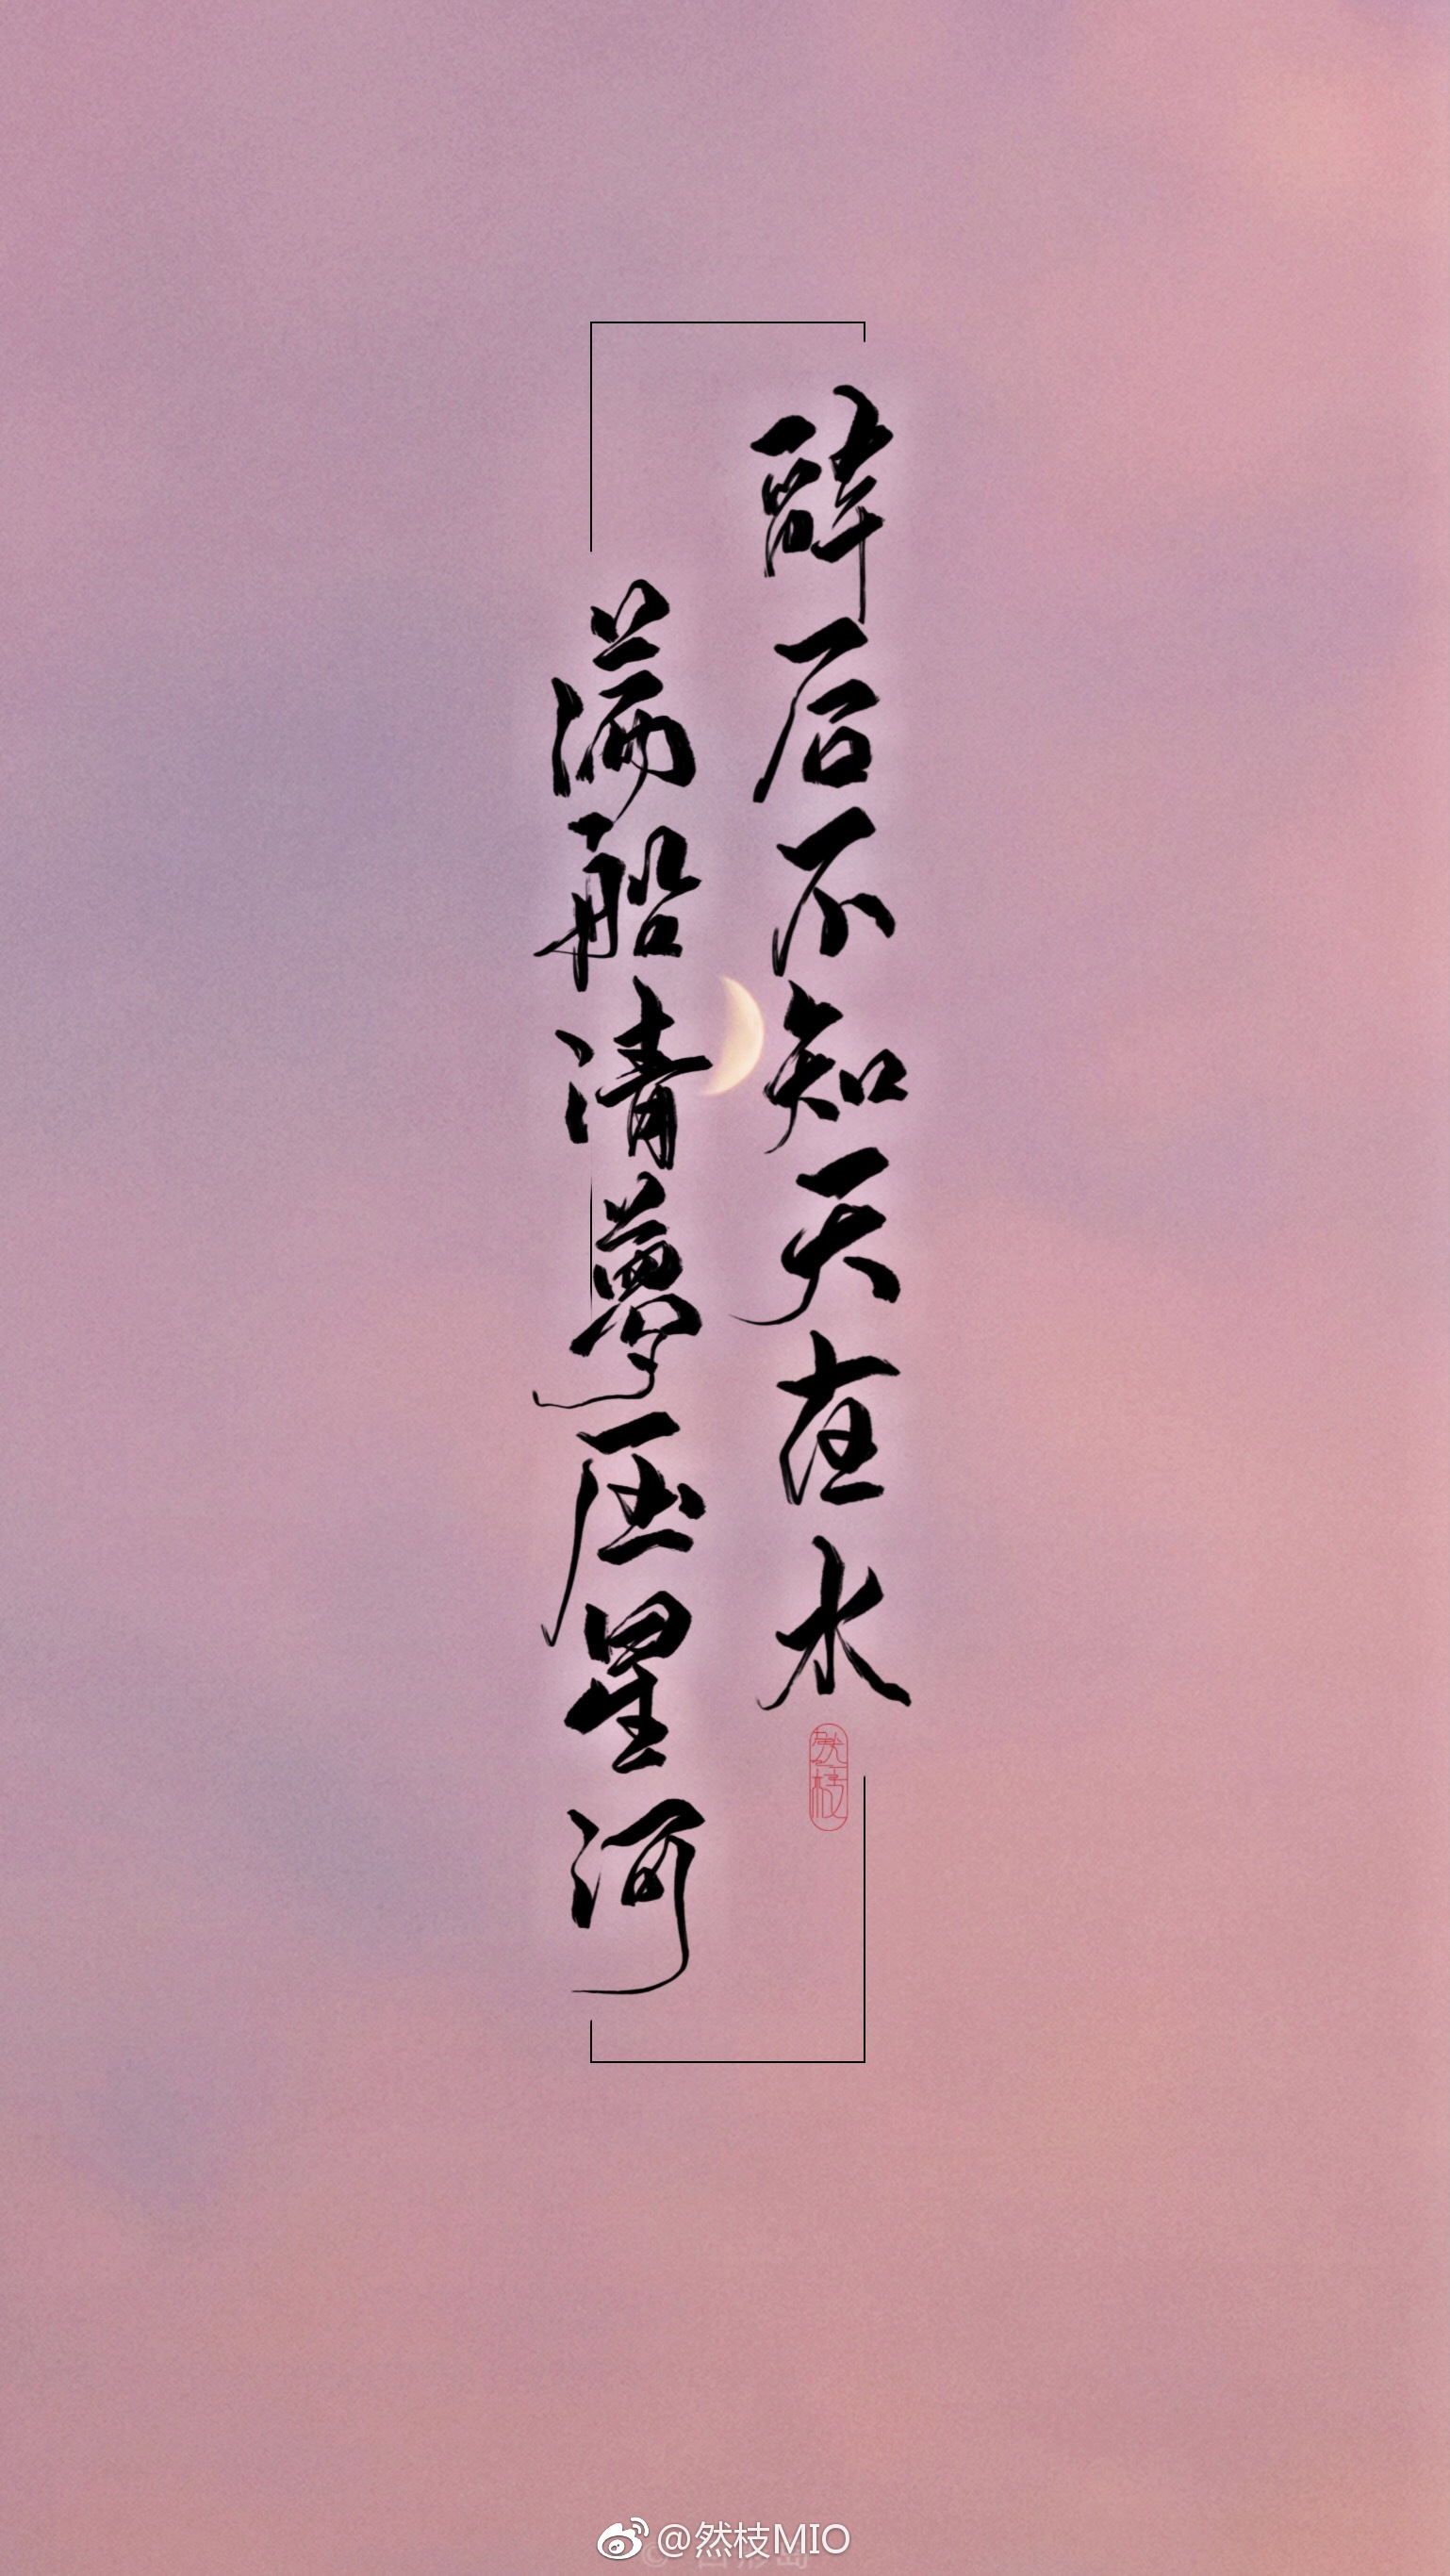 醉后不知天在水
满船清夢压星河
然枝
@然枝MIO